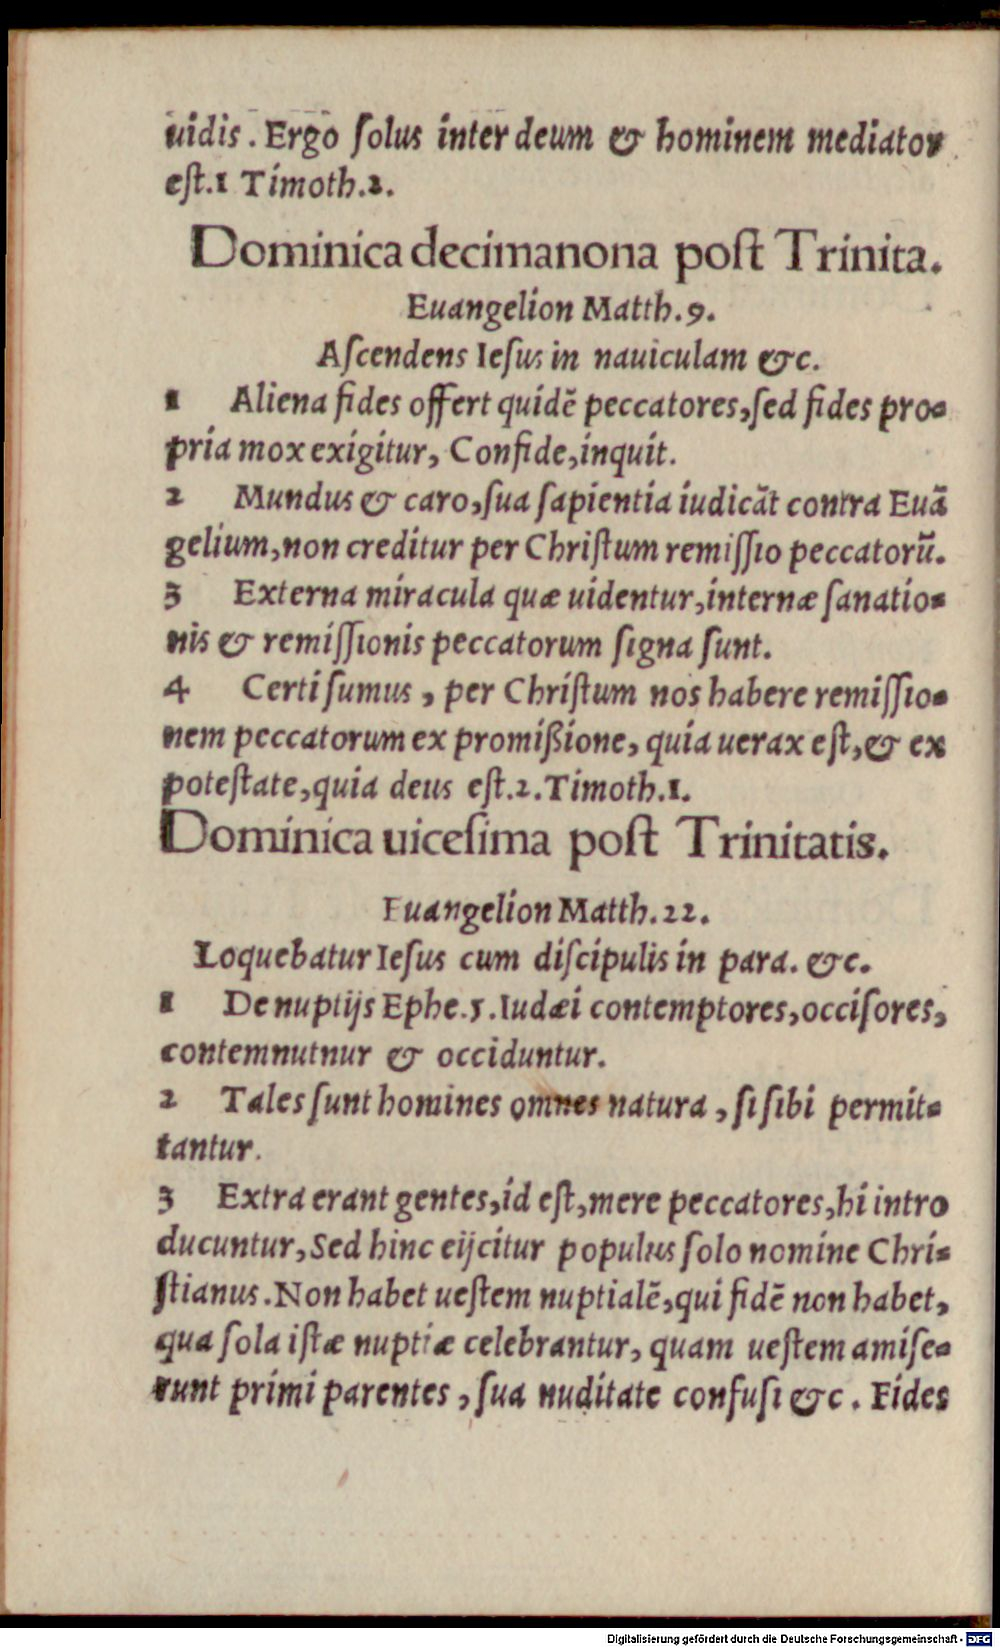 uidis. Ergo ſolus inter deum & hominem mediator
eſt.1 Timoth.2.
Dominica decimanona poſt Trinita.
Euangelion Matth.9.
Aſcendens Ieſus in nauiculam &c.
1 Aliena fides offert quidē peccatores,ſed fides pro-
pria mox exigitur, Confide,inquit.
2 Mundus & caro,ſua ſapientia iudicāt contra Euā
gelium,non creditur per Chriſtum remiſſio peccatorū.
3 Externa miracula quæ uidentur,internæ ſanatio-
nis & remiſſionis peccatorum ſigna ſunt.
4 Certi ſumus , per Chriſtum nos habere remiſſio-
nem peccatorum ex promißione, quia uerax eſt,& ex
poteſtate,quia deus eſt.2.Timoth.1.
Dominica uiceſima poſt Trinitatis.
Euangelion Matth.22.
Loquebatur Ieſus cum diſcipulis in para. &c.
1 De nuptijs Ephe.5.Iudæi contemptores,occiſores,
contemnutnur & occiduntur.
2 Tales ſunt homines omnes natura , ſi ſibi permit-
tantur.
3 Extra erant gentes,id eſt,mere peccatores,hi intro
ducuntur, Sed hinc eijcitur populus ſolo nomine Chri-
ſtianus.Non habet ueſtem nuptialē,qui fidē non habet,
qua ſola iſtæ nuptiæ celebrantur, quam ueſtem amiſe-
runt primi parentes , ſua nuditate confuſi &c. Fides
Digitalisierung gefördert durch die Deutsche Forschungsgemeinschaft - DFG